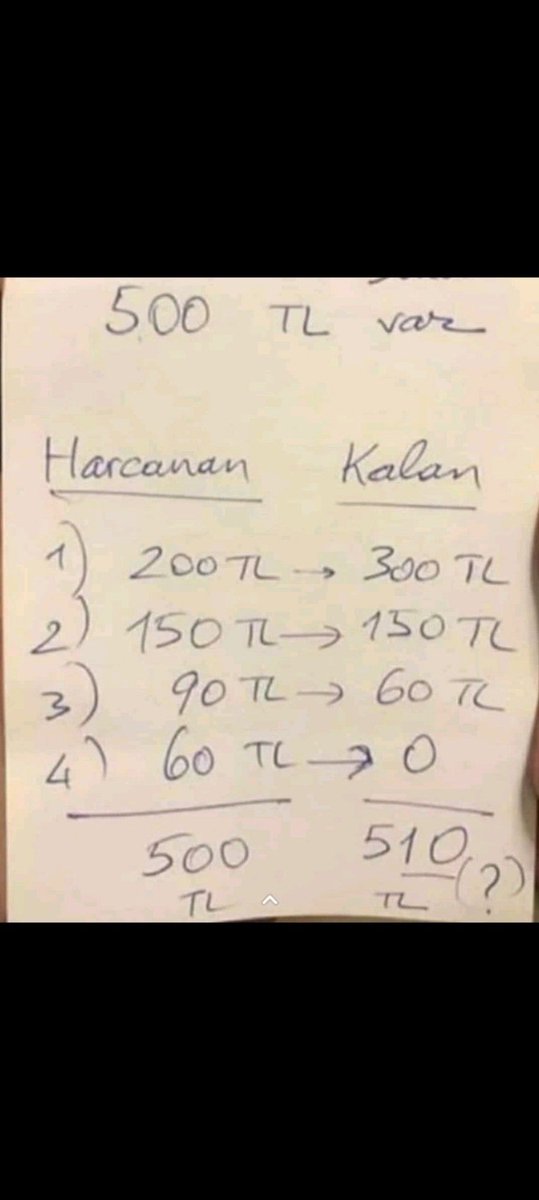 500 TL var
Harcanan Kalan
1) 200 TL → 300 TL
2) 150 TL → 150 TL
3) 90 TL → 60 TL
4) 60 TL → 0
500 510
TL TL (?)